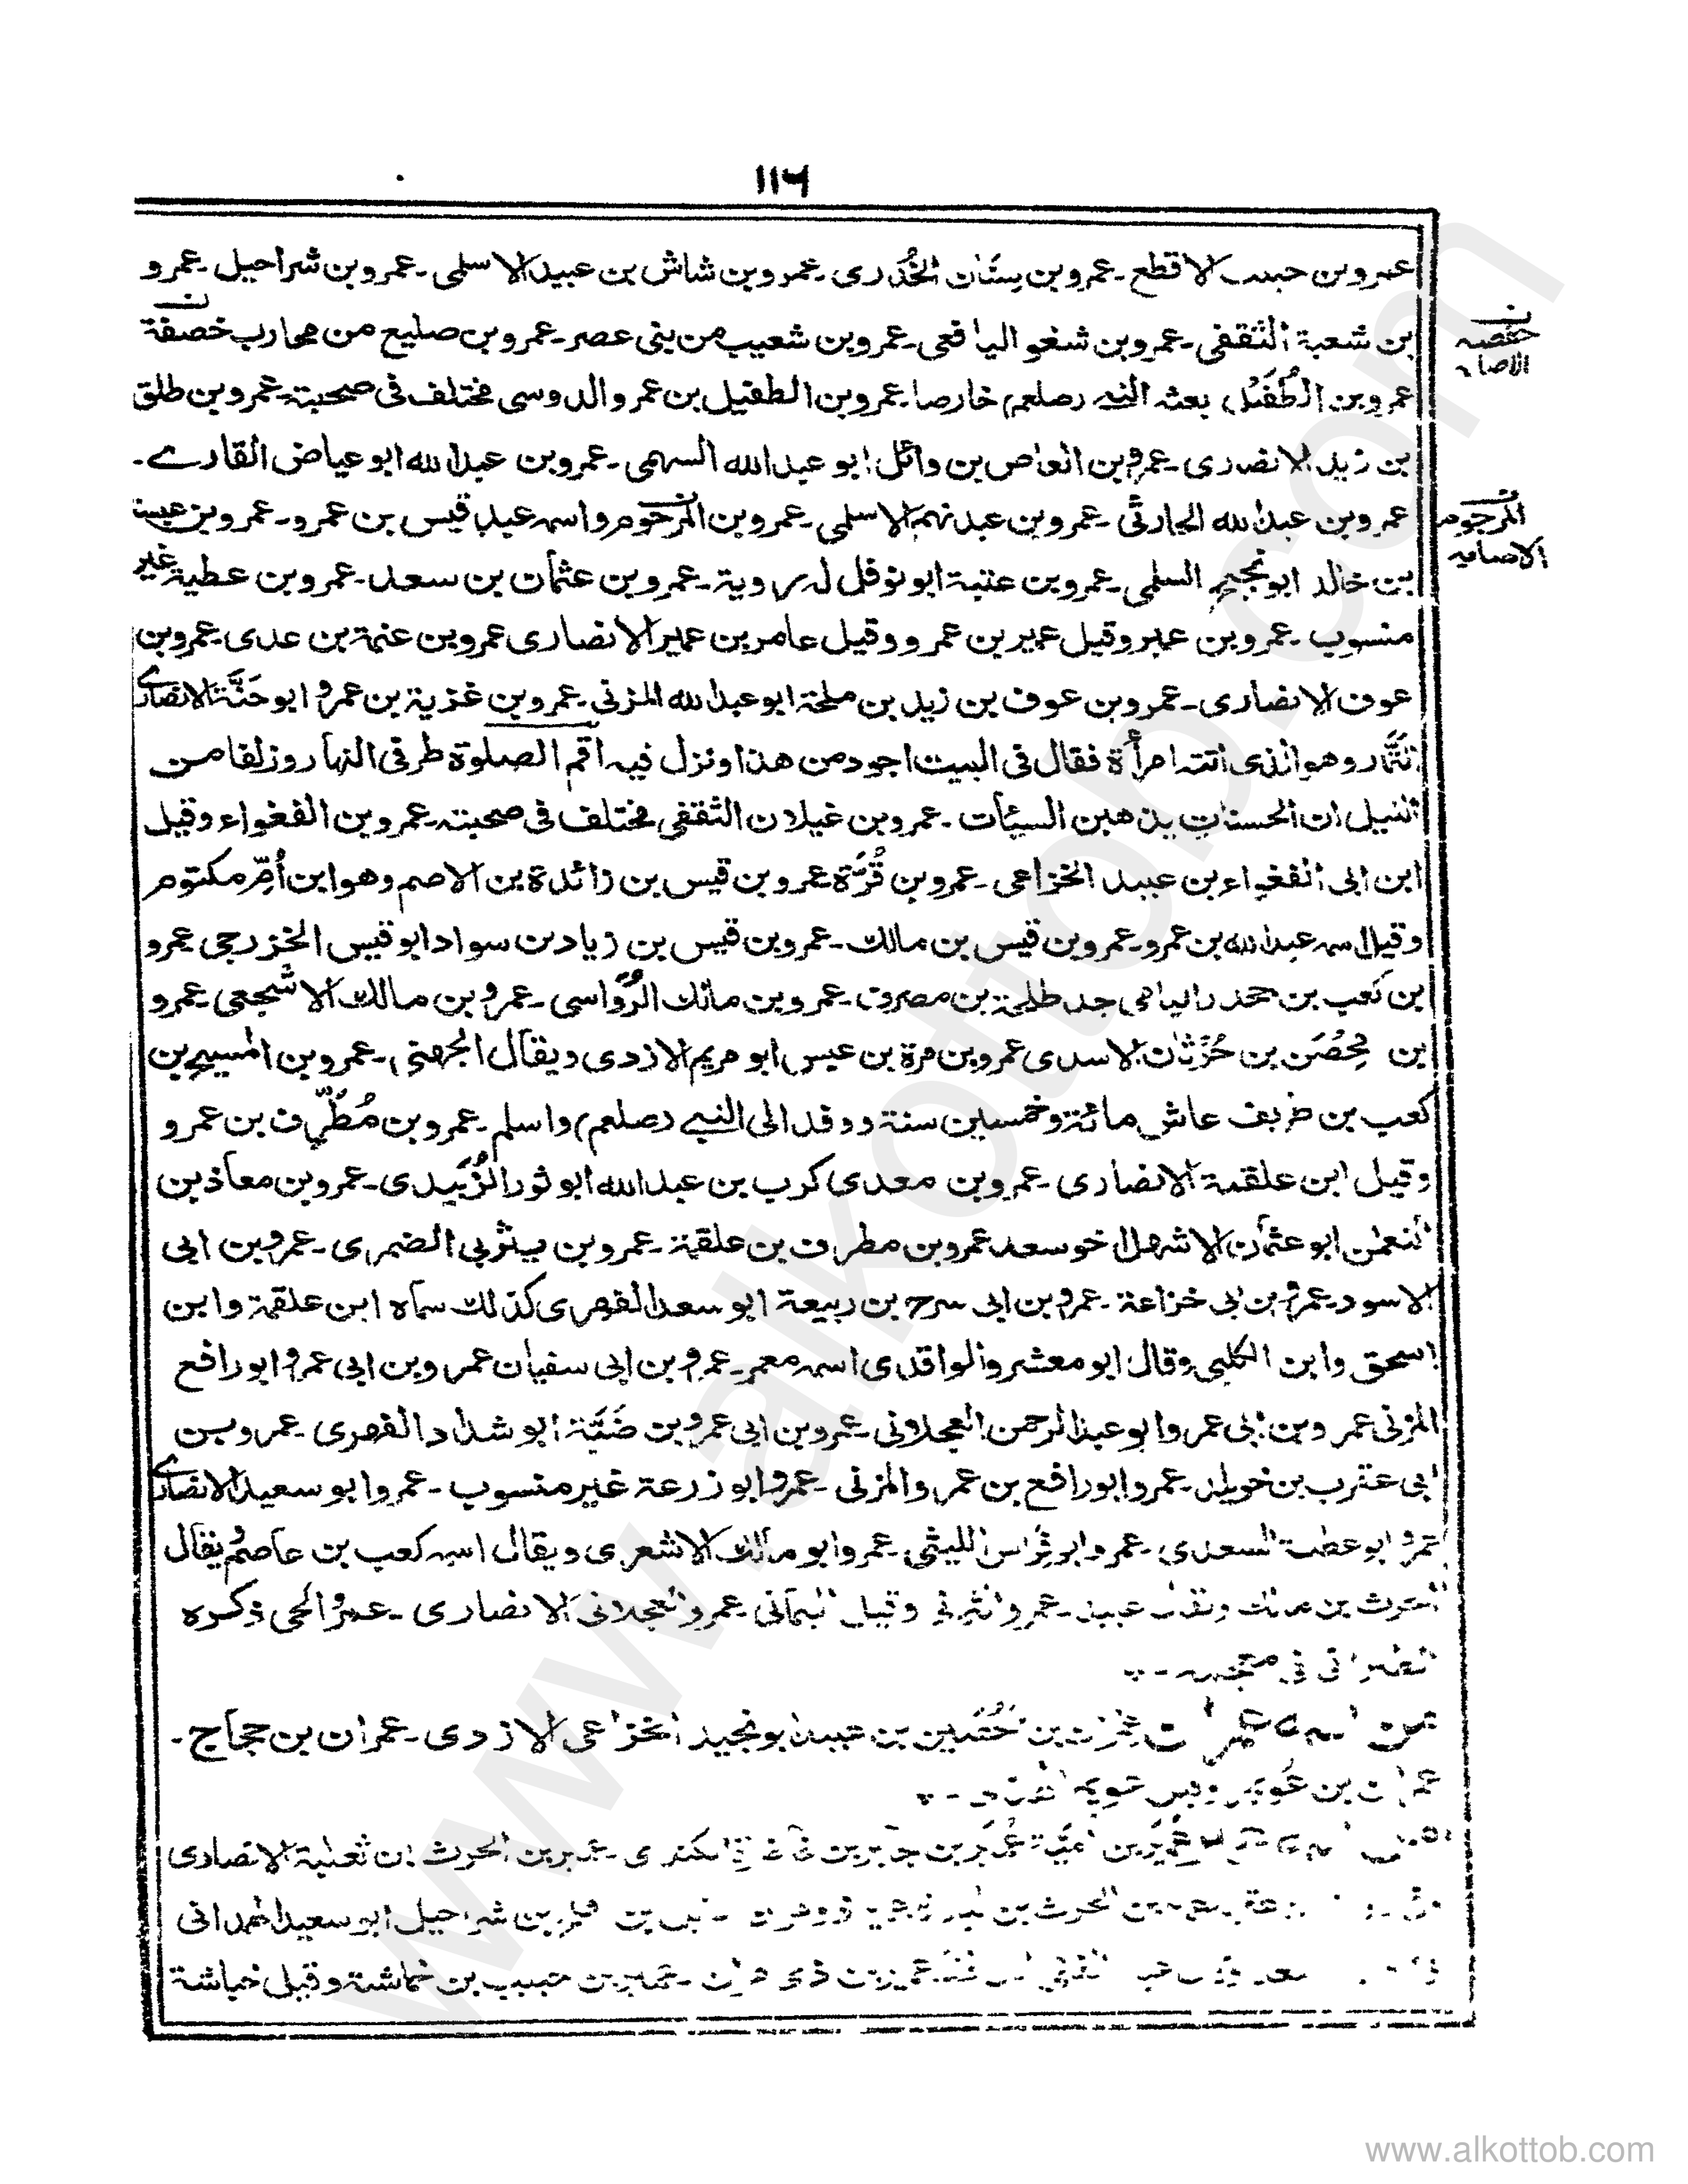 ١١٦
عمرو بن حبيب الاقطع ـ عمرو بن سِنَان الخُدْرى ـ عمرو بن شاش بن عبيد الاسلمى ـ عمرو بن شراحيل ـ عمرو
بن شعبة الثقفى ـ عمرو بن شغو اليافعى ـ عمرو بن شعيب من بنى عصر ـ عمرو بن صليع من محارب خصفة
حفصه
الاصابه
عمرو بن الطُفَيْل بعثه النبى (صلعم) خارصا ـ عمرو بن الطفيل بن عمرو الدوسى مختلف فى صحبته ـ عمرو بن طلق
بن زيد الانصارى ـ عمرو بن العاص بن وائل ابو عبد الله السهمى ـ عمرو بن عبد الله ابو عياض القارے ـ
عمرو بن عبد الله الحارثى ـ عمرو بن عبد نهم الاسلمى ـ عمرو بن المرحوم واسمه عبد قيس بن عمرو ـ عمرو بن عبسة
المرجوم
الاصابه
بن خالد ابو نجيح السلمى ـ عمرو بن عتبة ابو نوفل له روية ـ عمرو بن عثمان بن سعد ـ عمرو بن عطية غير
منسوب ـ عمرو بن عمير وقيل عمير بن عمرو وقيل عامر بن عمير الانصارى عمرو بن عنمة بن عدى ـ عمرو بن
عوف الانصارى ـ عمرو بن عوف بن زيد بن ملحة ابو عبد الله المزنى ـ عمرو بن غزية بن عمرو ابو حَنَّة الانصارے
التَّمَّار وهو الذى اتته امرأة فقال فى البيت اجود من هذا ونزل فيه اقم الصلوة طرفى النهار وزلفا من
الليل ان الحسنات يذهبن السيأت ـ عمرو بن غيلان الثقفى مختلف فى صحبته ـ عمرو بن الفغواء وقيل
ابن ابى الفغواء بن عبيد الخزاعى ـ عمرو بن قُرَّة عمرو بن قيس بن زائدة بن الاصم وهو ابن اُمّ مكتوم
وقيل اسمه عبد الله بن عمرو ـ عمرو بن قيس بن مالك ـ عمرو بن قيس بن زياد بن سواد ابو قيس الخزرجى عمرو
بن كعب بن جحدر اليامى جد طلحة بن مصرف ـ عمرو بن مالك الرُّواسى ـ عمرو بن مالك الاشجعى ـ عمرو
بن مِحْصَن بن حُرْثان الاسدى عمرو بن مرة بن عبس ابو مريم الازدى ويقال الجهنى ـ عمرو بن المسيح بن
كعب بن طريف عاش مائة وخمسين سنة ووفد الى النبے (صلعم) واسلم ـ عمرو بن مُطَرِّف بن عمرو
وقيل ابن علقمة الانصارى ـ عمرو بن معدى كرب بن عبد الله ابو ثور الزُّبَيدى ـ عمرو بن معاذ بن
النعمن ابو عثمان الاشهل اخو سعد عمرو بن مطرف بن علقمة ـ عمرو بن يثربى الضمرى ـ عمرو بن ابى
الاسود ـ عمرو بن ابى خزاعة ـ عمرو بن ابى سرح بن ربيعة ابو سعد الفهرى كذلك سماه ابن علقمة وابن
اسحق وابن الكلبى وقال ابو معشر والواقدى اسمه معمر ـ عمرو بن ابى سفيان عمرو بن ابى عمرو ابو رافع
المزنى عمرو بن ابى عمرو ابو عبد الرحمن العجلانى ـ عمرو بن ابى عمرو بن ضَبَّة ابو شداد الفهرى ـ عمرو بن
ابى عقرب بن خويلد ـ عمرو ابو رافع بن عمرو المزنى ـ عمرو ابو زرعة غير منسوب ـ عمرو ابو سعيد الانصارے
عمرو ابو عطية السعدى ـ عمرو ابو فراس الليثى ـ عمرو ابو مالك الاشعرى ويقال اسمه كعب بن عاصم يقال
الحرث بن مالك ويقال عبيد ـ عمرو وقيل اليمانى عمرو العجلانى الانصارى ـ عمرو الجى ذكره
الطبرانى فى معجمه ـ
من اسمه عمران عمران بن حُصَين بن عبيد ابو نجيد الخزاعى الازدى ـ عمران بن حجاج ـ
عمران بن عويم وقيل عويمر
من اسمه عمير بن جابر بن الكندى ـ عمير بن الحرث بن ثعلبة الانصارى
بن الحرث بن بن شراحيل ابو سعيد الهمدانى
عمير بن ذى مران ـ عمير بن حبيب بن خماشة وقيل خباشة
www.alkottob.com
www.alkottob.com